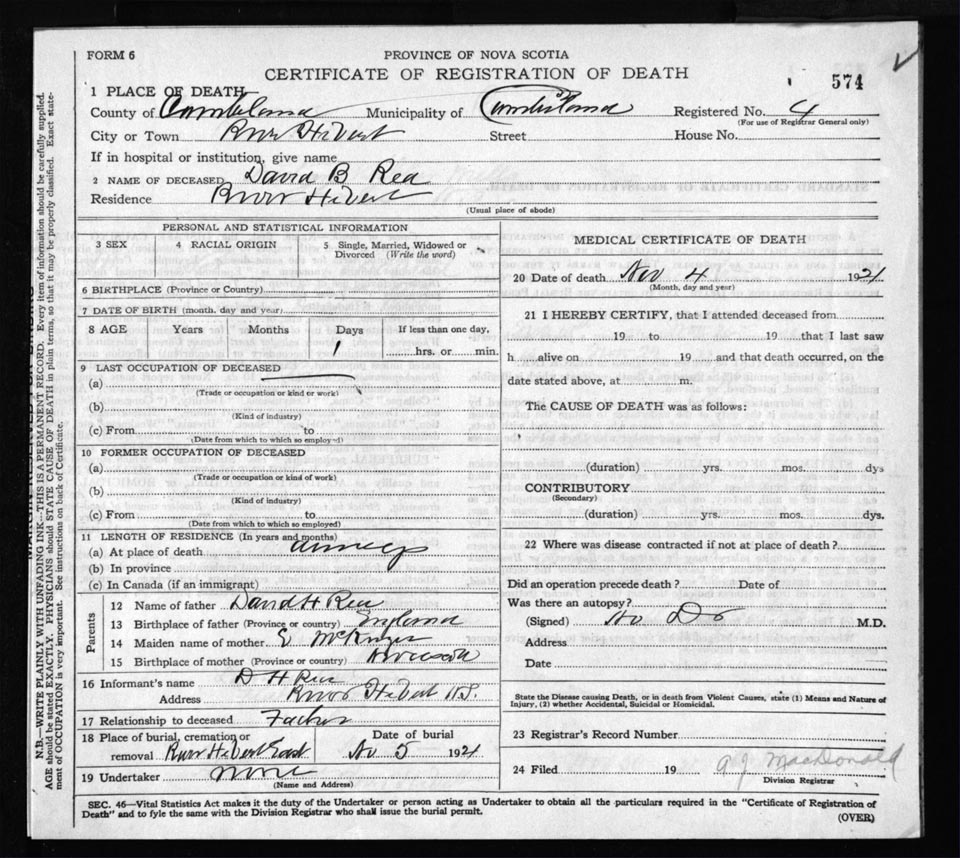 FORM 6
PROVINCE OF NOVA SCOTIA
CERTIFICATE OF REGISTRATION OF DEATH
574
1 PLACE OF DEATH
County of Cumberland Municipality of Cumberland Registered No. 4
(For use of Registrar General only)
City or Town River Hebert Street House No.
If in hospital or institution, give name
2 NAME OF DECEASED David B Rea
Residence River Hebert
(Usual place of abode)
PERSONAL AND STATISTICAL INFORMATION
3 SEX 4 RACIAL ORIGIN 5 Single, Married, Widowed or
Divorced (Write the word)
6 BIRTHPLACE (Province or Country)
7 DATE OF BIRTH (month, day and year)
8 AGE Years Months Days If less than one day,
1 hrs. or min.
9 LAST OCCUPATION OF DECEASED
(a)
(Trade or occupation or kind or work)
(b)
(Kind of industry)
(c) From to
(Date from which to which so employed)
10 FORMER OCCUPATION OF DECEASED
(a)
(Trade or occupation or kind of work)
(b)
(Kind of industry)
(c) From to
(Date from which to which so employed)
11 LENGTH OF RESIDENCE (In years and months)
(a) At place of death always
(b) In province
(c) In Canada (if an immigrant)
Parents
12 Name of father David H Rea
13 Birthplace of father (Province or country) England
14 Maiden name of mother E
15 Birthplace of mother (Province or country)
16 Informant's name D H Rea
Address River Hebert N.S.
17 Relationship to deceased Father
18 Place of burial, cremation or Date of burial
removal River Hebert East No 5 1921
19 Undertaker none
(Name and Address)
MEDICAL CERTIFICATE OF DEATH
20 Date of death Nov 4 1921
(Month, day and year)
21 I HEREBY CERTIFY, that I attended deceased from
19 to 19 that I last saw
h alive on 19 and that death occurred, on the
date stated above, at m.
The CAUSE OF DEATH was as follows:
(duration) yrs. mos. dys
CONTRIBUTORY
(Secondary)
(duration) yrs. mos. dys.
22 Where was disease contracted if not at place of death?
Did an operation precede death? Date of
Was there an autopsy?
(Signed) No Dr M.D.
Address
Date
State the Disease causing Death, or in death from Violent Causes, state (1) Means and Nature of
Injury, (2) whether Accidental, Suicidal or Homicidal.
23 Registrar's Record Number
24 Filed 19 A J MacDonald
Division Registrar
SEC. 46—Vital Statistics Act makes it the duty of the Undertaker or person acting as Undertaker to obtain all the particulars required in the "Certificate of Registration of
Death" and to fyle the same with the Division Registrar who shall issue the burial permit.
(OVER)
N.B.—WRITE PLAINLY WITH UNFADING INK—THIS IS A PERMANENT RECORD. Every item of information should be carefully supplied.
AGE should be stated EXACTLY. PHYSICIANS should STATE CAUSE OF DEATH in plain terms, so that it may be properly classified. Exact state-
ment of OCCUPATION is very important. See instructions on back of Certificate.